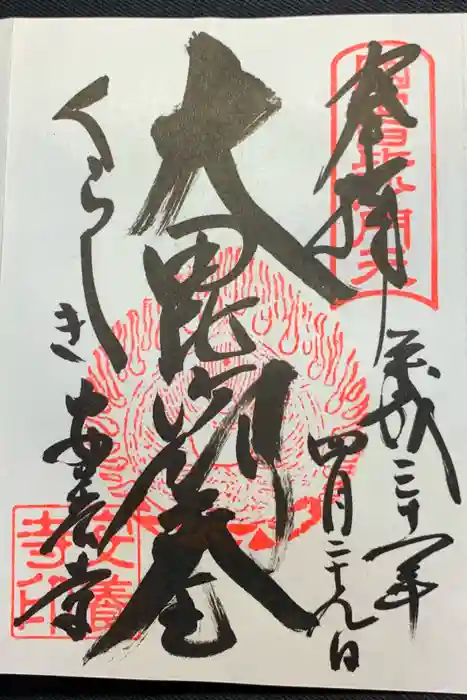 奉拝
平成三十一年
四月二十九日
大毘沙門天王
くらしき
安養寺
安養寺印